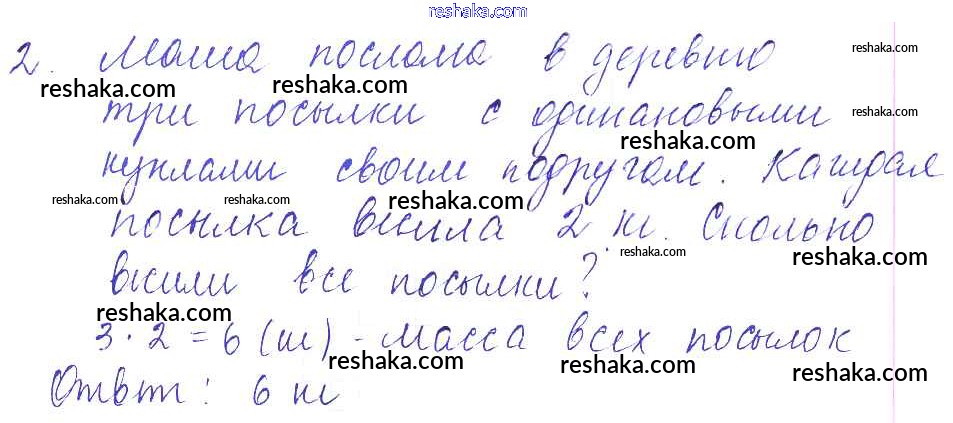 reshaka.com
2. Маша послала в деревню
reshaka.com
reshaka.com
reshaka.com
три посылки с одинаковыми
reshaka.com
reshaka.com
куклами своим подругам. Каждая
reshaka.com
reshaka.com
reshaka.com
посылка весила 2 кг. Сколько
reshaka.com
reshaka.com
весили все посылки?
reshaka.com
3 · 2 = 6 (кг) - масса всех посылок
reshaka.com
reshaka.com
reshaka.com
Ответ: 6 кг
reshaka.com